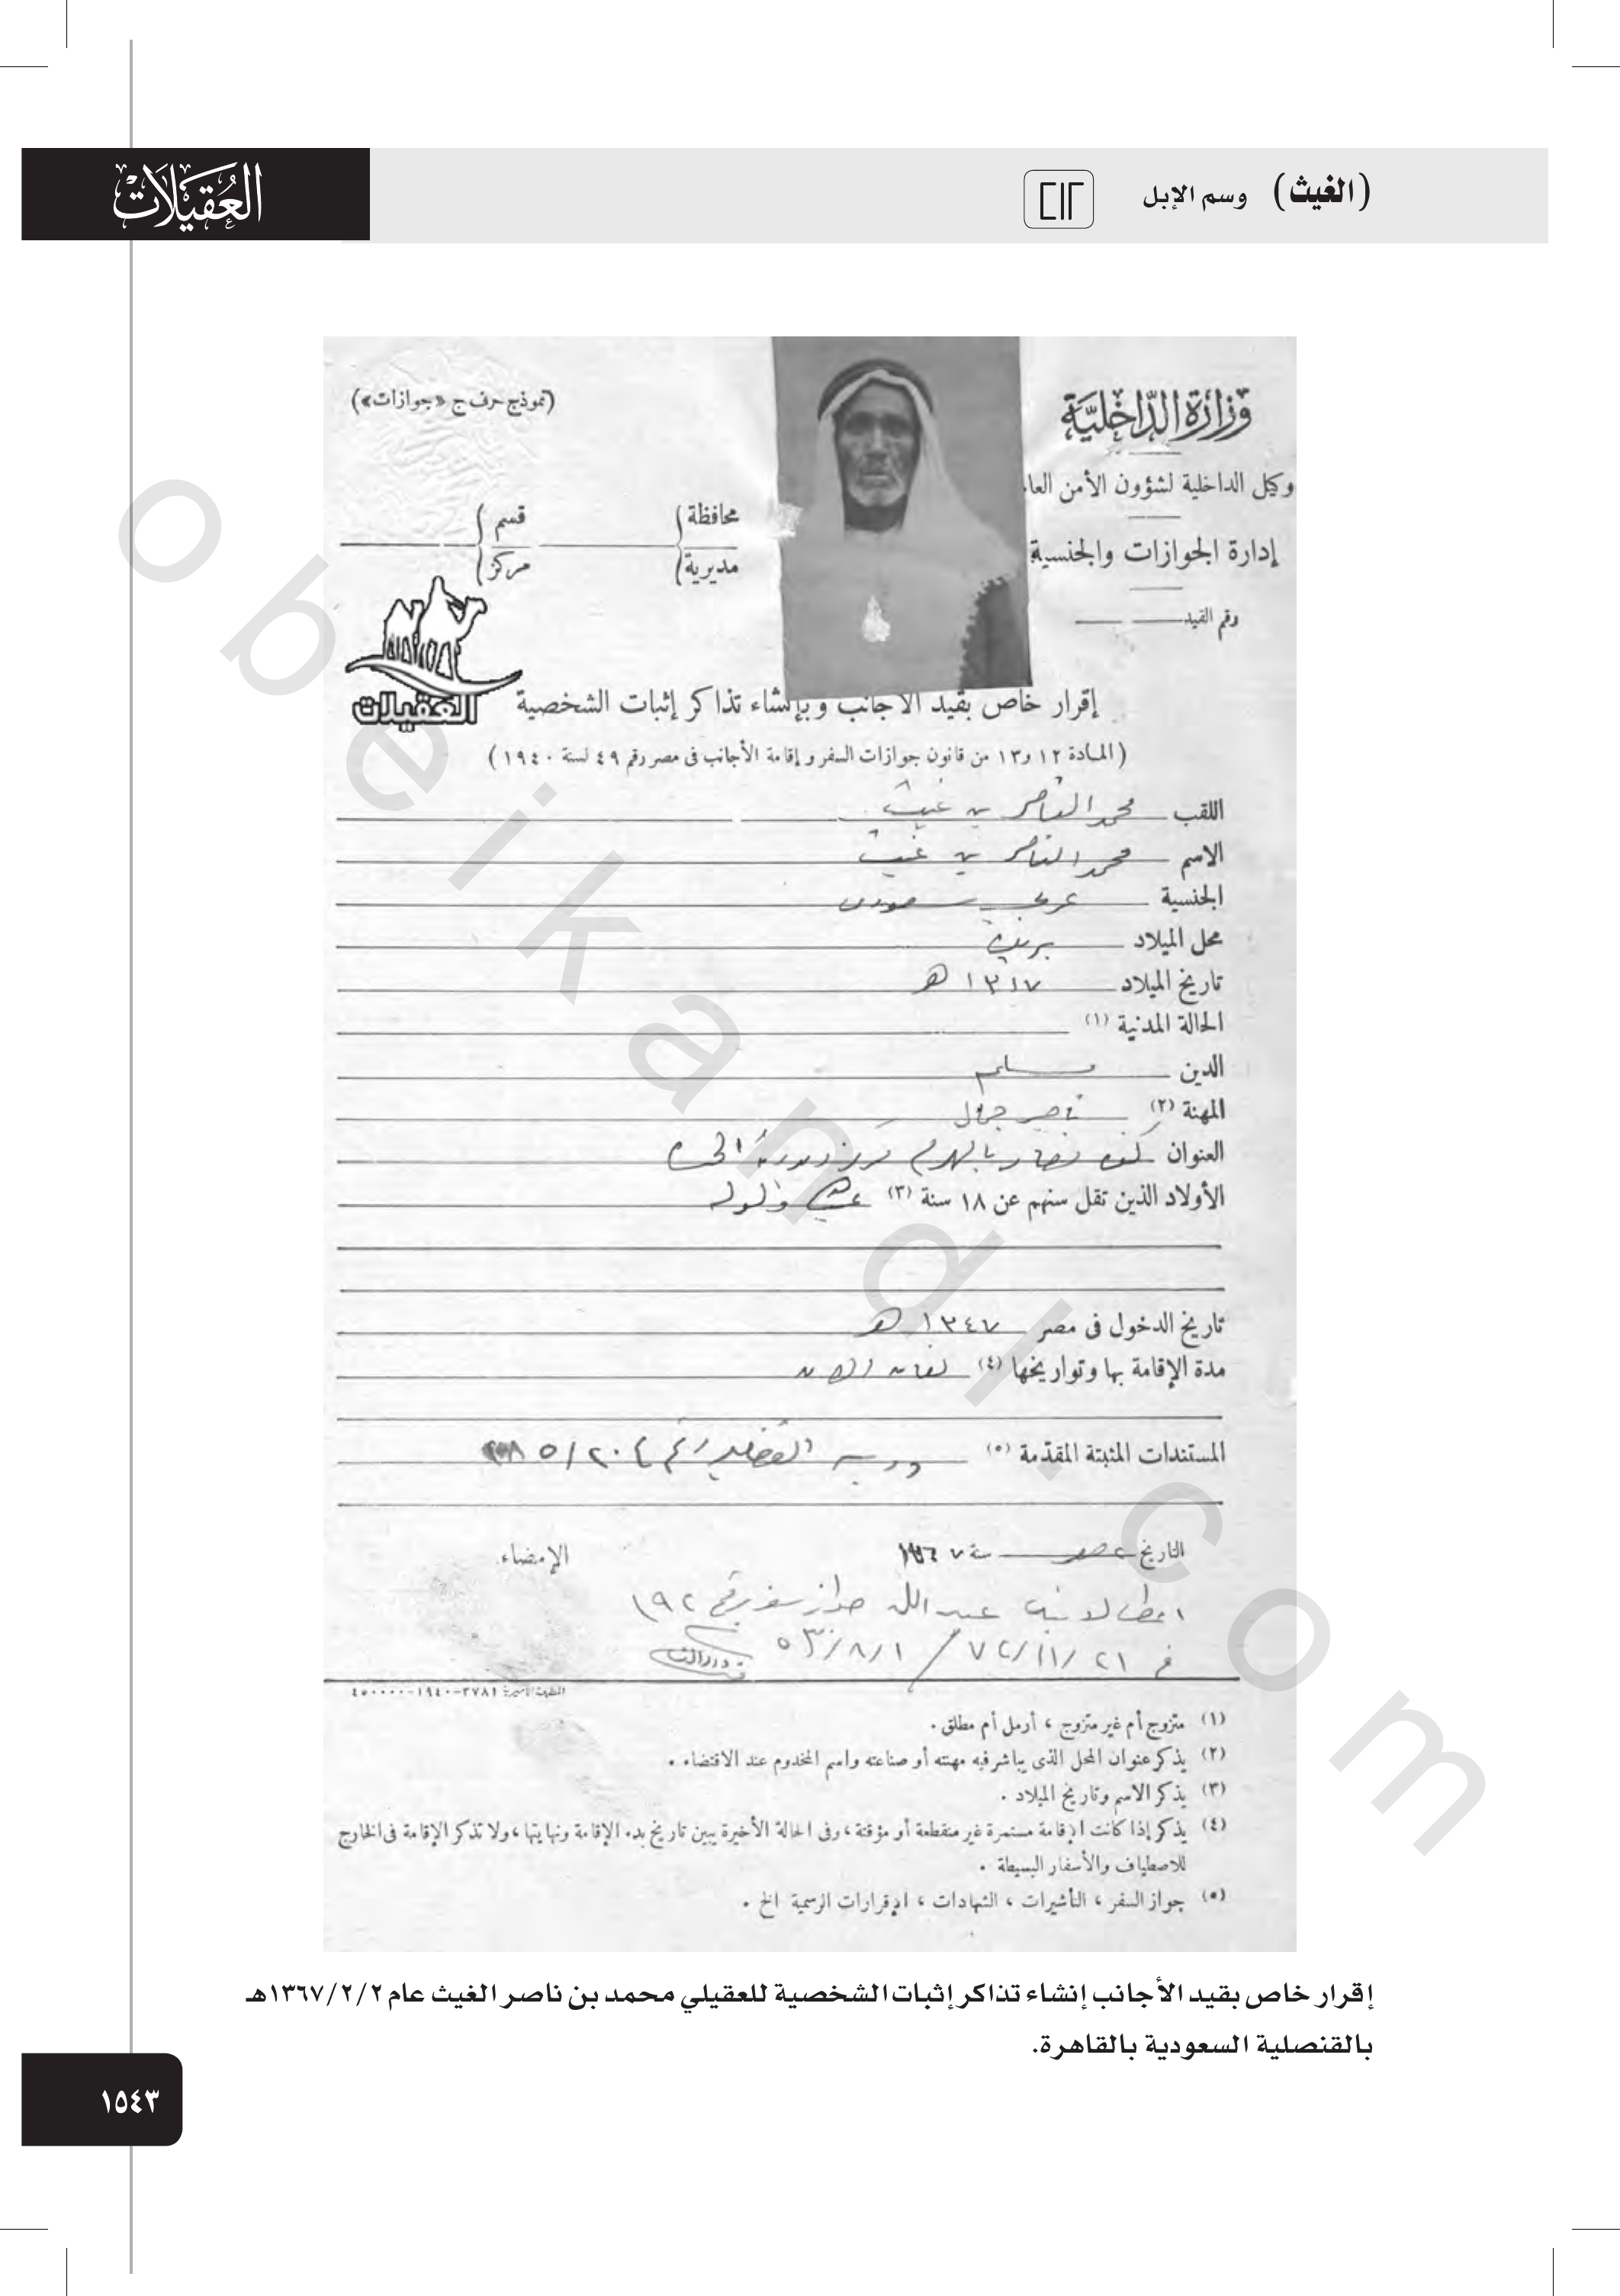 (الغيث) وسم الإبل
العقيلات
وزارة الداخلية
(نموذج حرف ج «جوازات»)
وكيل الداخلية لشؤون الأمن العام
محافظة
مديرية
قسم
مركز
إدارة الجوازات والجنسية
رقم القيد
العقيلات
إقرار خاص بقيد الأجانب وبإنشاء تذاكر إثبات الشخصية
(المادة ١٢ و١٣ من قانون جوازات السفر وإقامة الأجانب فى مصر رقم ٤٩ لسنة ١٩٤٠)
اللقب محمد الناصر بن غيث
الاسم محمد الناصر بن غيث
الجنسية عربي سعودى
محل الميلاد بريده
تاريخ الميلاد ١٣١٧ هـ
الحالة المدنية (١)
الدين مسلم
المهنة (٢) تاجر جمال
العنوان كفر نصار بالهرم مركز ومديرية الجيزة
الأولاد الذين تقل سنهم عن ١٨ سنة (٣)
تاريخ الدخول فى مصر ١٣٤٧ هـ
مدة الإقامة بها وتواريخها (٤) لغاية الآن
المستندات المثبتة المقدمة (٥)
التاريخ ٢ صفر سنة ١٣٦٧
الإمضاء
عبد الله جواز سفر رقم ١٩٢
فى ٢١/١١/٧٢
المطبعة الأميرية
(١) متزوج أم غير متزوج ، أرمل أم مطلق .
(٢) يذكر عنوان المحل الذى يباشر فيه مهنته أو صناعته واسم المخدوم عند الاقتضاء .
(٣) يذكر الاسم وتاريخ الميلاد .
(٤) يذكر إذا كانت الإقامة مستمرة غير منقطعة أو مؤقتة ، وفى الحالة الأخيرة يبين تاريخ بدء الإقامة ونهايتها ، ولا تذكر الإقامة فى الخارج
للاصطياف والأسفار البسيطة .
(٥) جواز السفر ، التأشيرات ، الشهادات ، الإقرارات الرسمية الخ .
إقرار خاص بقيد الأجانب إنشاء تذاكر إثبات الشخصية للعقيلي محمد بن ناصر الغيث عام ١٣٦٧/٢/٢هـ
بالقنصلية السعودية بالقاهرة.
١٥٤٣
obeikandi.com